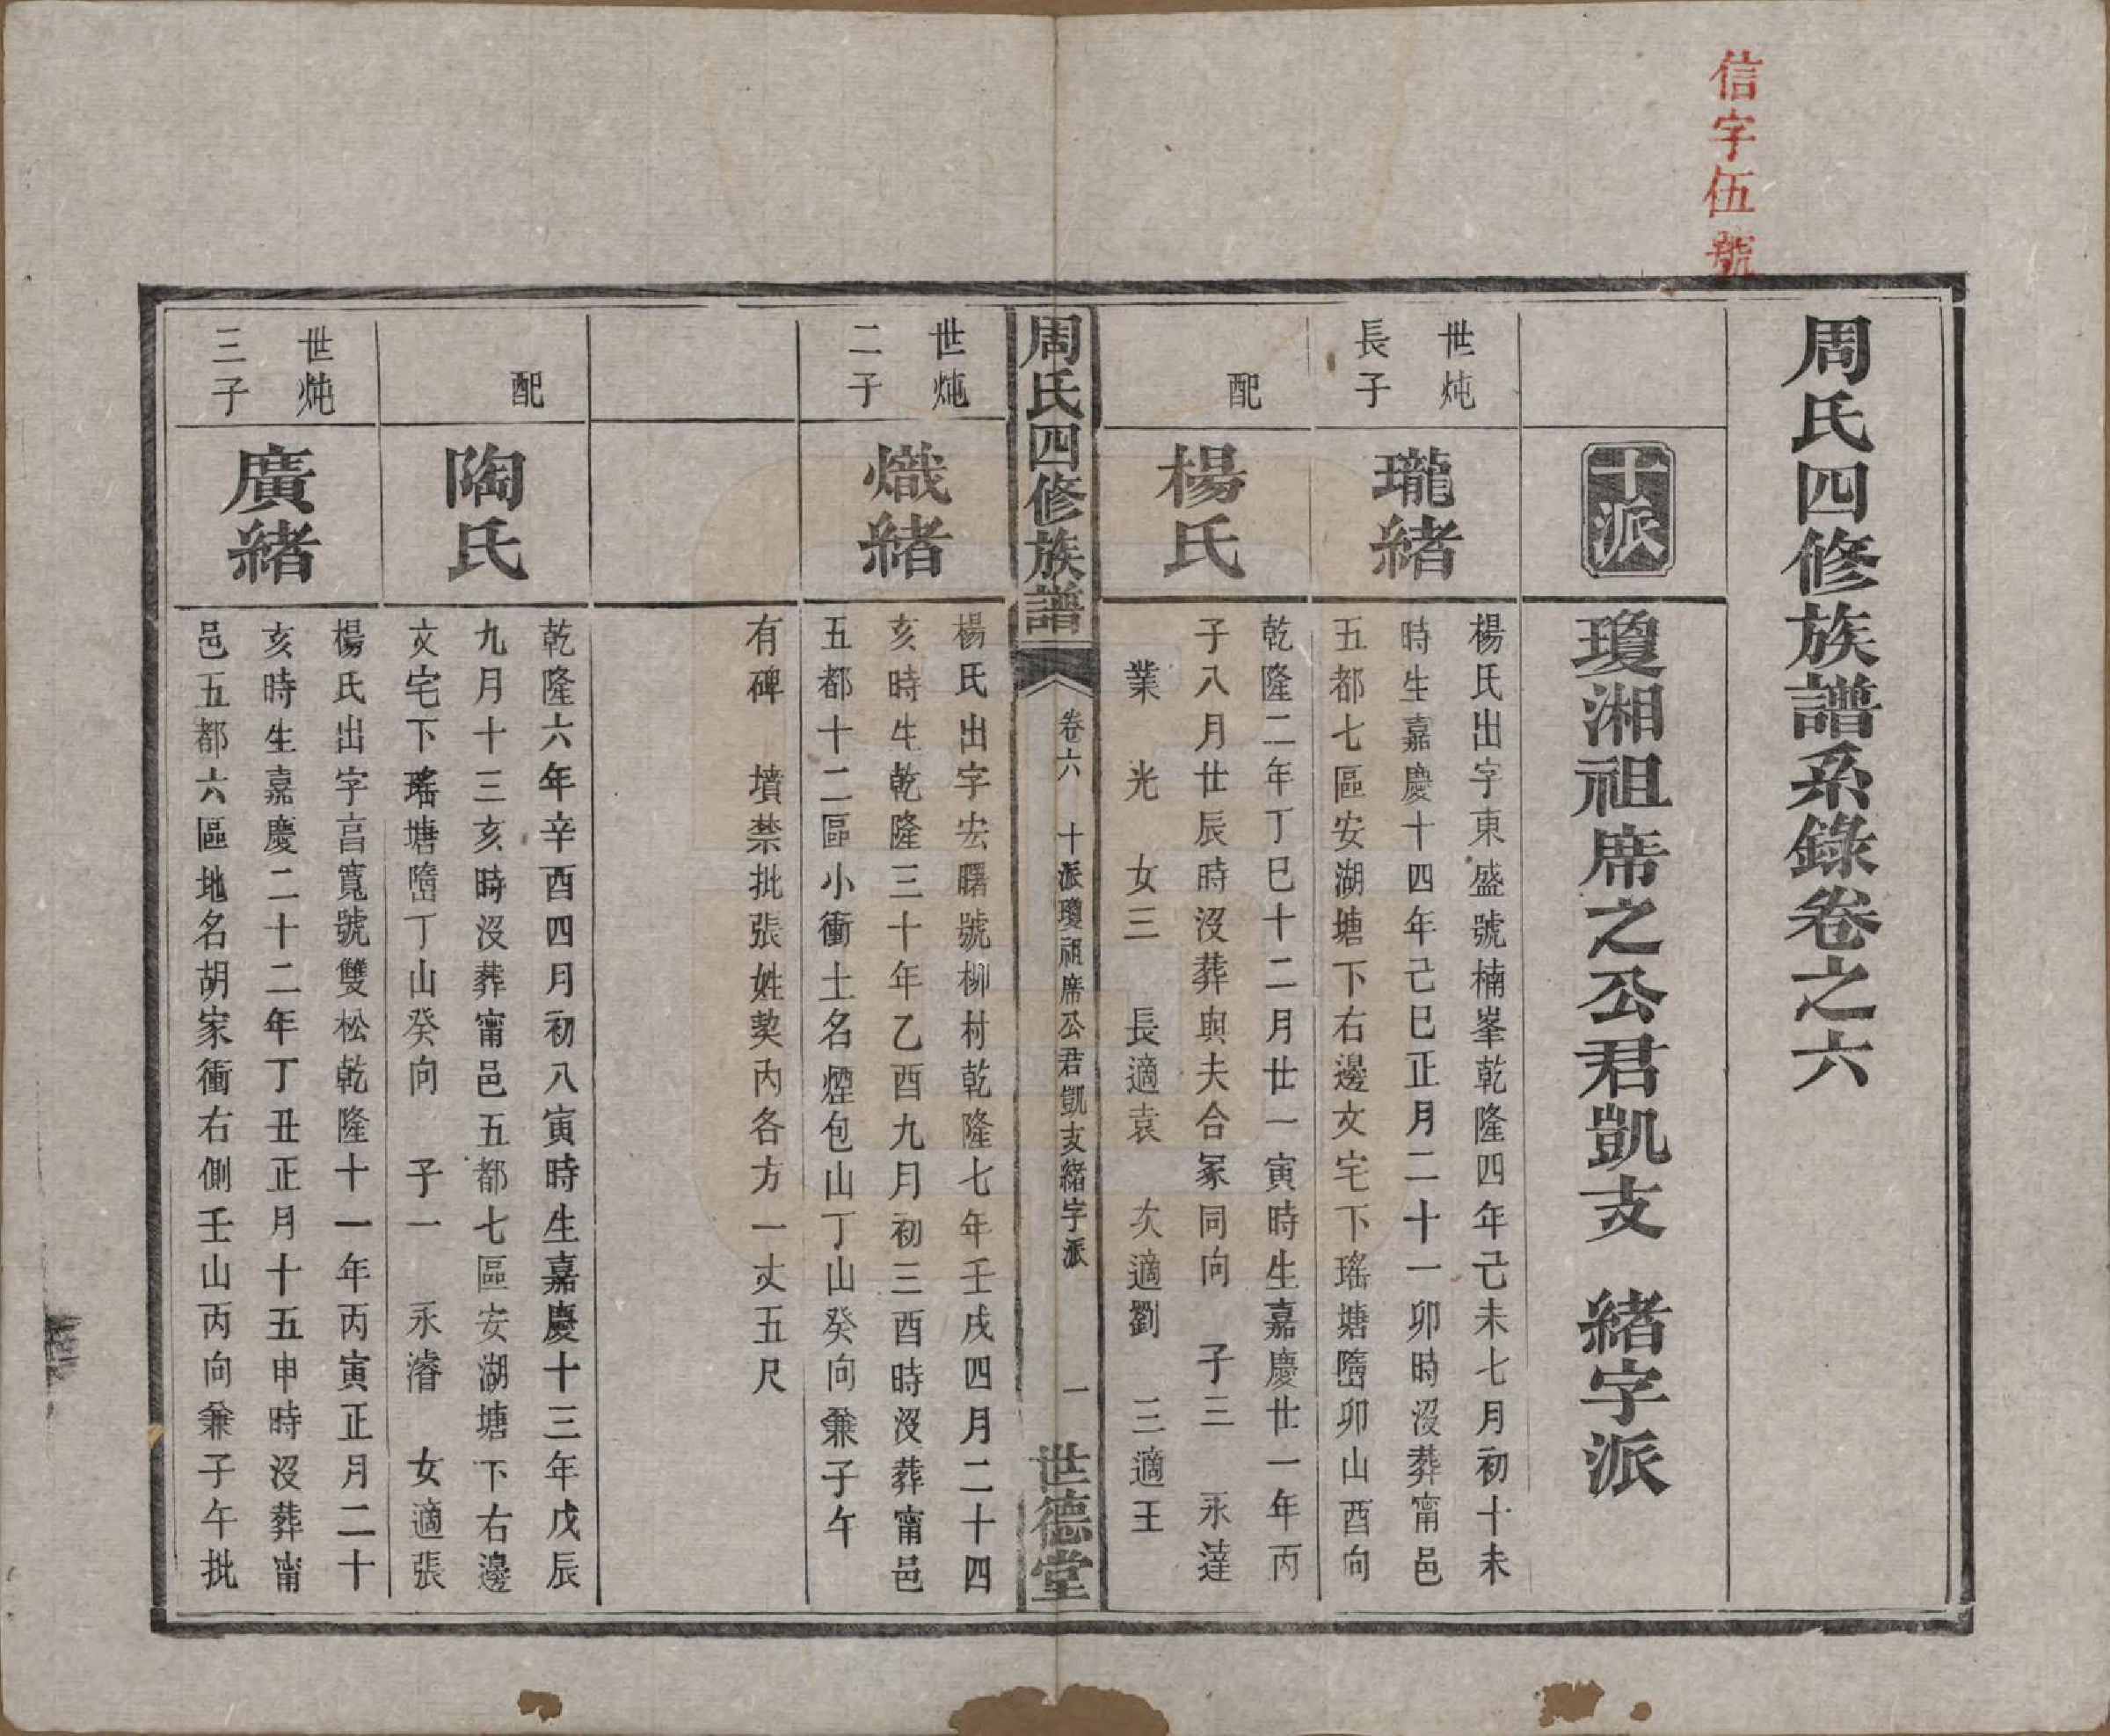 信字伍號
周氏四修族譜系錄卷之六
十派
瓊湘祖席之公君凱支　緒字派
世炖
長子
瓏緒
楊氏出字東盛號楠峯乾隆四年己未七月初十未
時生嘉慶十四年己巳正月二十一卯時沒葬甯邑
五都七區安湖塘下右邊文宅下瑤塘墮卯山酉向
配
楊氏
乾隆二年丁巳十二月廿一寅時生嘉慶廿一年丙
子八月廿辰時沒葬與夫合冢同向　子三　永達
業　光　女三　長適袁　次適劉　三適王
周氏四修族譜
卷六　十派瓊祖席公君凱支緒字派
一
世德堂
世炖
二子
熾緒
楊氏出字宏曙號柳村乾隆七年壬戌四月二十四
亥時生乾隆三十年乙酉九月初三酉時沒葬甯邑
五都十二區小衝土名煙包山丁山癸向兼子午
有碑　墳禁批張姓契內各方一丈五尺
配
陶氏
乾隆六年辛酉四月初八寅時生嘉慶十三年戊辰
九月十三亥時沒葬甯邑五都七區安湖塘下右邊
文宅下瑤塘墮丁山癸向　子一　永濬　女適張
世炖
三子
廣緒
楊氏出字亯寬號雙松乾隆十一年丙寅正月二十
亥時生嘉慶二十二年丁丑正月十五申時沒葬甯
邑五都六區地名胡家衝右側壬山丙向兼子午批